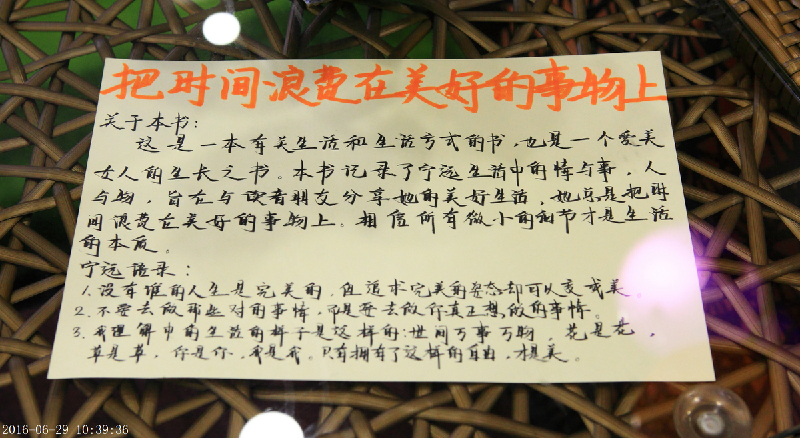 把时间浪费在美好的事物上
关于本书：
这是一本有关生活和生活方式的书，也是一个爱美
女人的生长之书。本书记录了宁远生活中的情与事，人
与物，旨在与读者朋友分享她的美好生活，她总是把时
间浪费在美好的事物上。相信所有微小的细节才是生活
的本质。
宁远语录：
1. 没有谁的人生是完美的，但追求完美的姿态却可以变成美。
2. 不要去做那些对的事情，而是要去做你真正想做的事情。
3. 我理解中的生活的样子是这样的：世间万事万物，花是花，
草是草，你是你，我是我。只有拥有了这样的自由，才是美。
2016-06-29 10:39:36